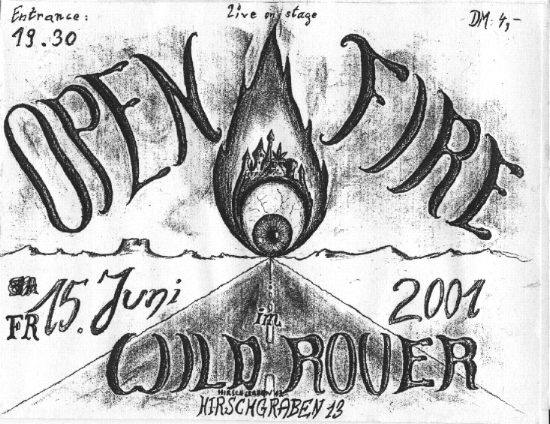 Entrance:
19.30
Live on stage
DM 4,-
OPEN FIRE
SA
FR 15. Juni 2001
im
WILD ROVER
HIRSCHGRABEN 13